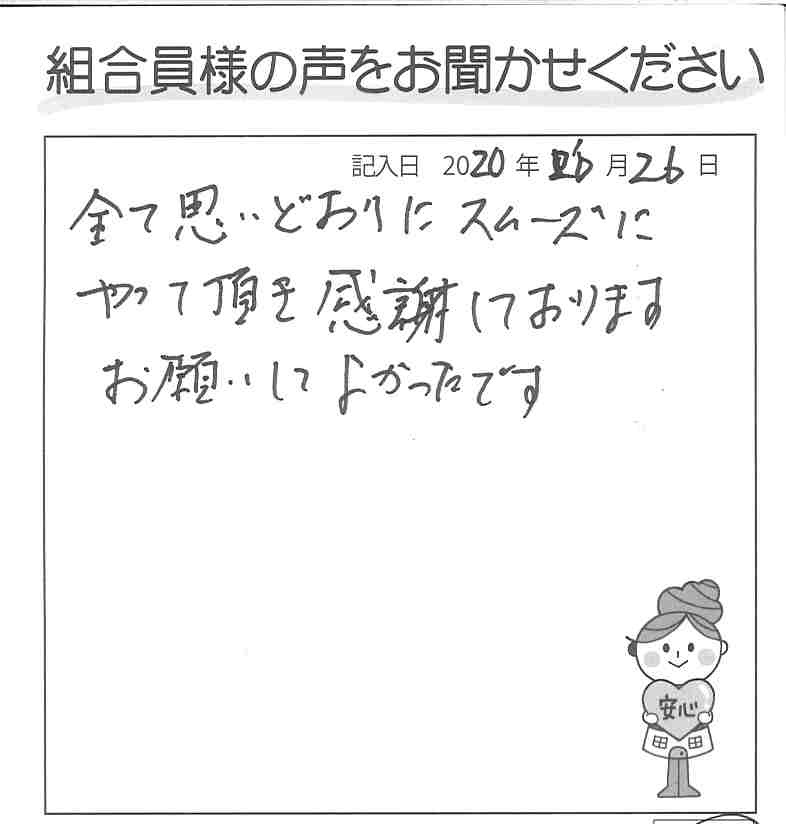 組合員様の声をお聞かせください
記入日 2020年 6月26日
全て思いどおりにスムーズに
やって頂き感謝しております
お願いしてよかったです
安心